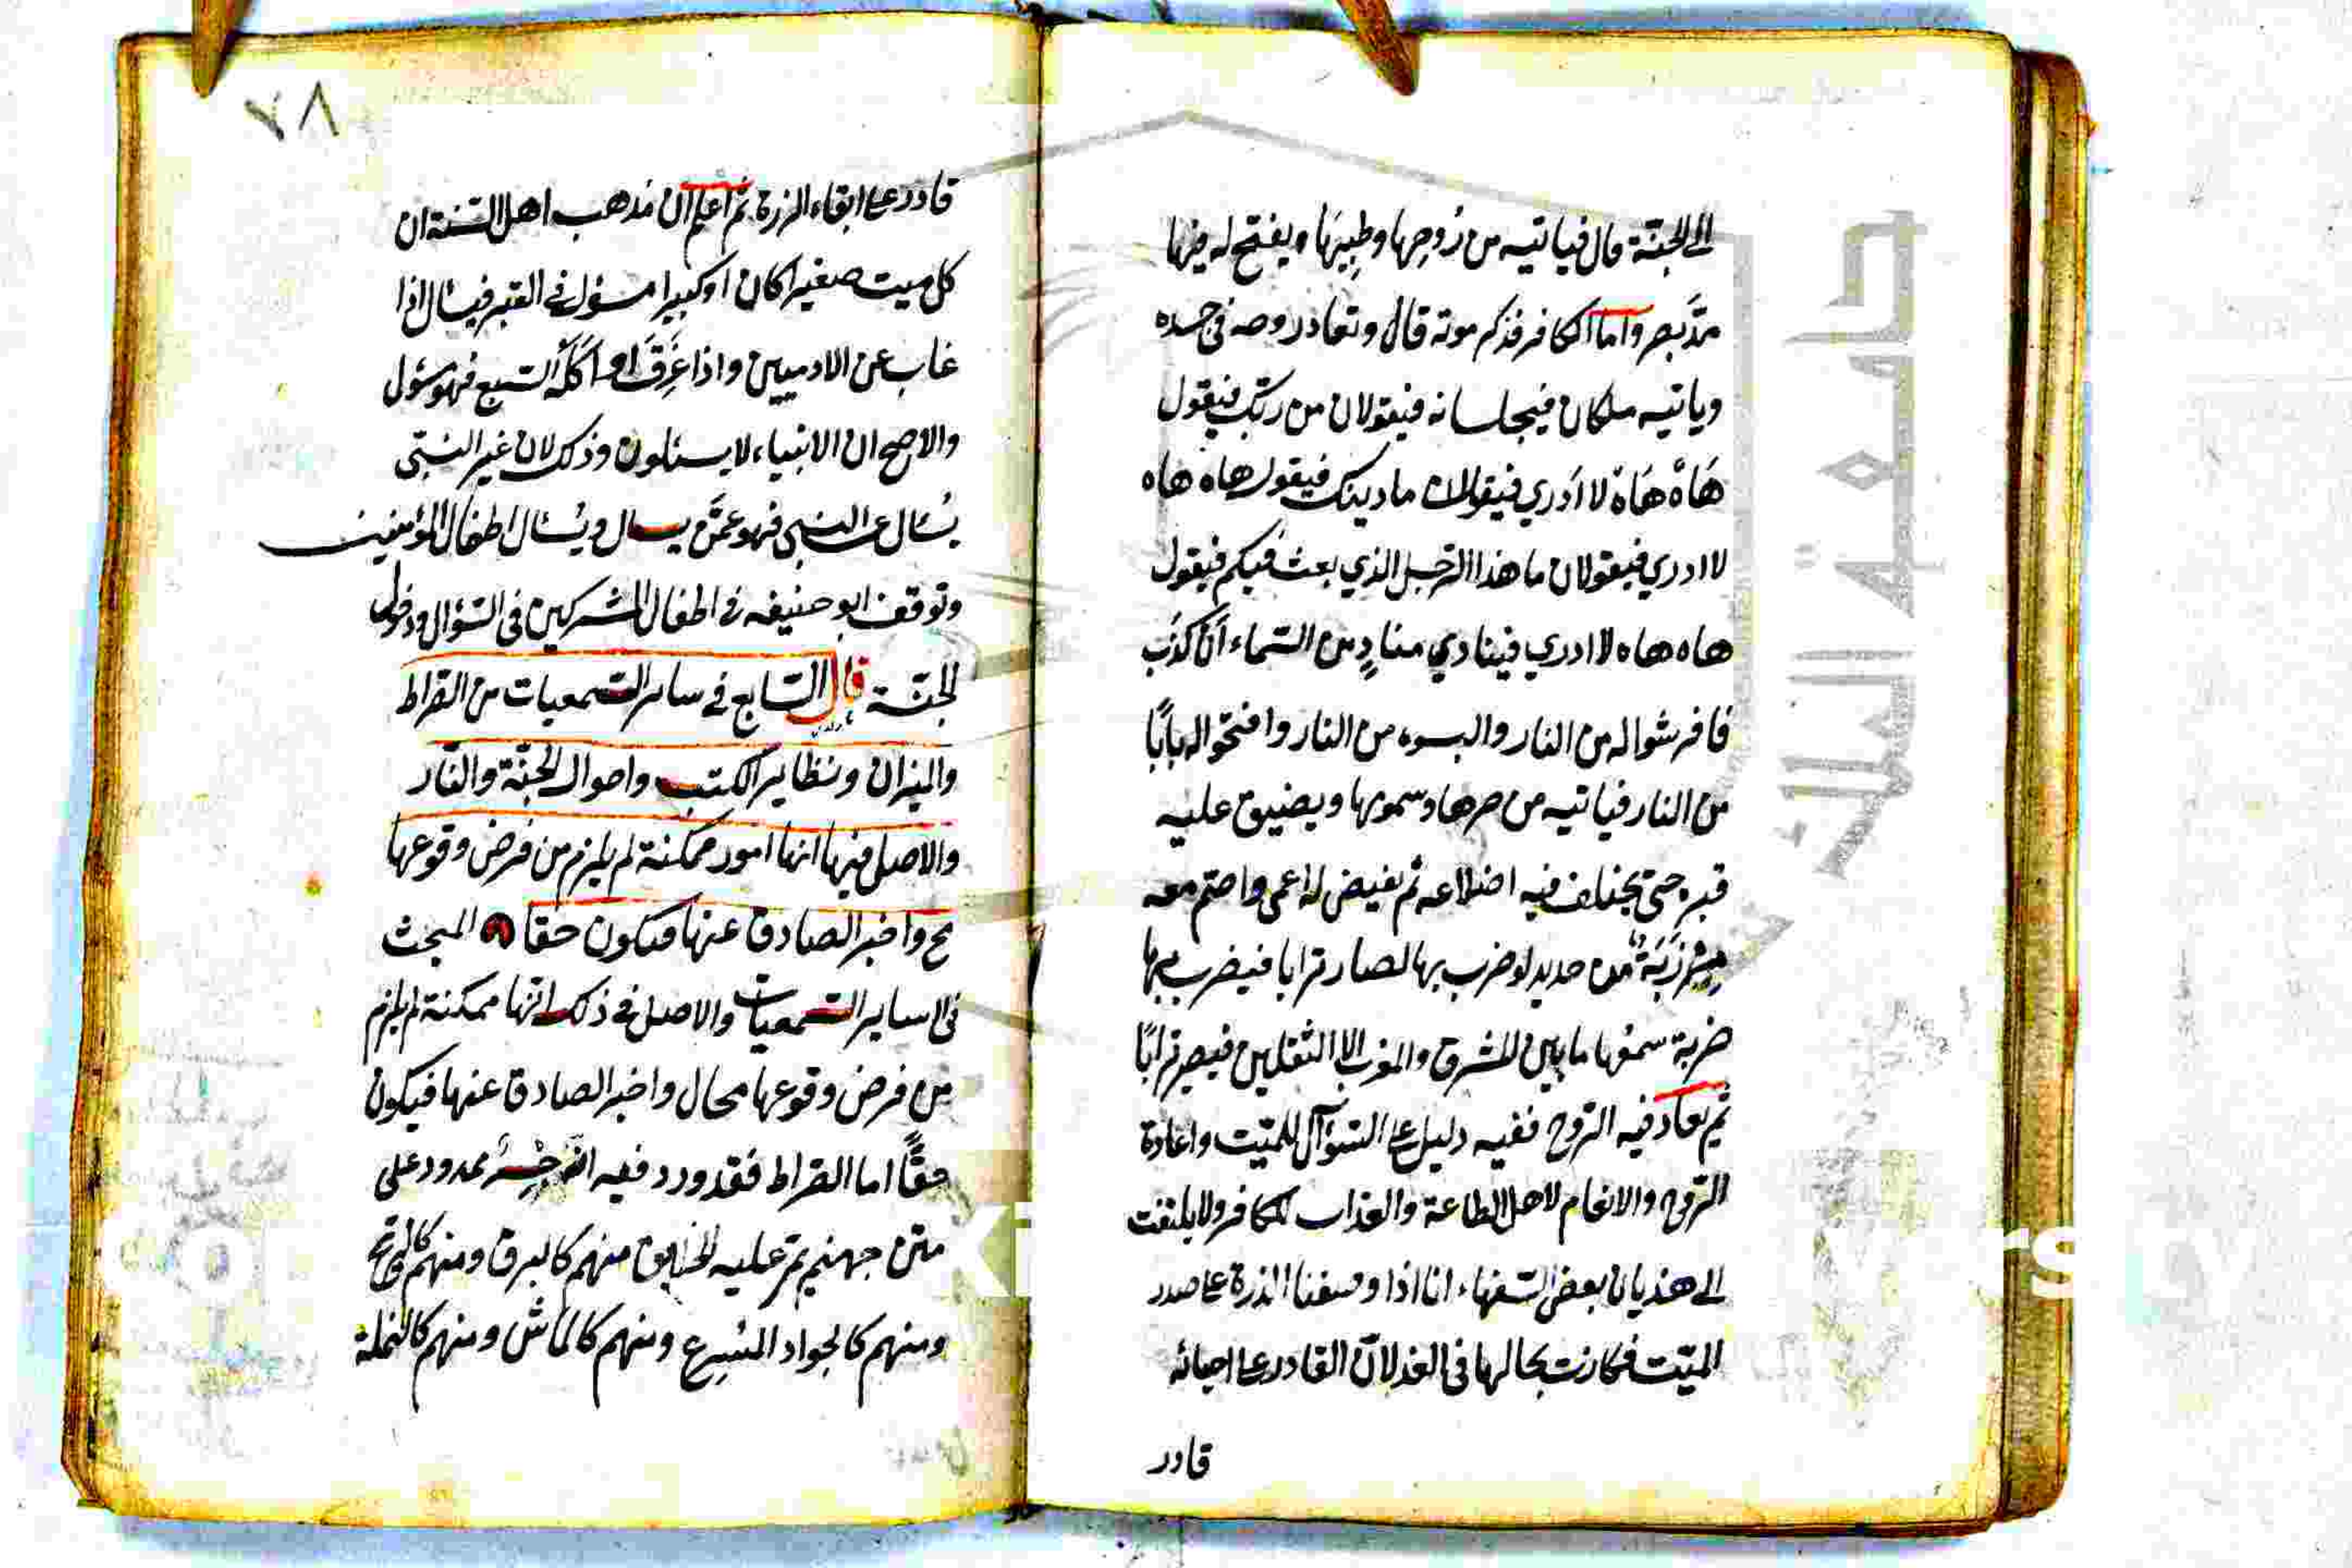 الى الجنة قال فياتيه من رَوحِها وطِيبِهَا ويفتح له فيها
مدَّ بصر واما الكافر فذكر موته قال وتعاد روحه فى جسده
وياتيه ملكان فيجلسانه فيقولان من ربّك فيقول
هَاهْ هَاهْ لا ادري فيقولان ما دينك فيقول هاه هاه
لا ادري فيقولان ما هذا الرّجل الذي بعث فيكم فيقول
هاه هاه لا ادري فينادي منادٍ من السّماء أن كذب
فافرشوا له من النار والبسوه من النار وافتحوا له بابًا
من النار فياتيه من حرها وسمومها ويضيق عليه
قبره حتى يختلف فيه اضلاعه ثم يقيض له اعمى واصم معه
مِرْزَبّة من حديد لو ضرب بها لصار ترابا فيضرب بها
ضربة سمعها ما بين المشرق والمغرب الا الثقلين فيصير ترابًا
ثم يعاد فيه الرّوح ففيه دليل على السّؤال للميّت واعادة
الرّوح والانعام لاهل الطاعة والعذاب للكافر ولا يلتفت
الى هذيان بعض السّفهاء انا اذا وضعنا الذرة على صدر
الميّت فكانت بحالها فى الغد لانّ القادر على احيائه
قادر
٧٨
قادر على ابقاء الزرة ثم اعلم ان مذهب اهل السّنة ان
كل ميت صغيرا كان او كبيرا مسؤل فى القبر فيسئال اذا
غاب عن الادميين واذا غَرِقَ او اكَلَهُ السّبع فهو مسؤل
والاصح ان الانبياء لا يسئلون وذلك لان غير النبىّ
يُسْئال عن النبى فهو عمّن يسال ويُسْئال اطفال المؤمنين
وتوقف ابو حنيفه فى اطفال المشركين فى السّؤال ودخول
الجنّة قال السّابع فى سائر السّمعيات من الصّراط
والميزان وتطاير الكتب واحوال الجنّة والنّار
والاصل فيها انها امور ممكنة لم يلزم من فرض وقوعها
مح واخبر الصادق عنها فيكون حقا المبحث
فى سائر السّمعيات والاصل فى ذلك انّها ممكنة لم يلزم
من فرض وقوعها محال واخبر الصادق عنها فيكون
حقًّا اما الصّراط فقد ورد فيه انّه جِسْرٌ ممدود على
متن جهنم يمرّ عليه الخلايق منهم كالبرق ومنهم كالريح
ومنهم كالجواد المسْرِع ومنهم كالماش ومنهم كالنملة